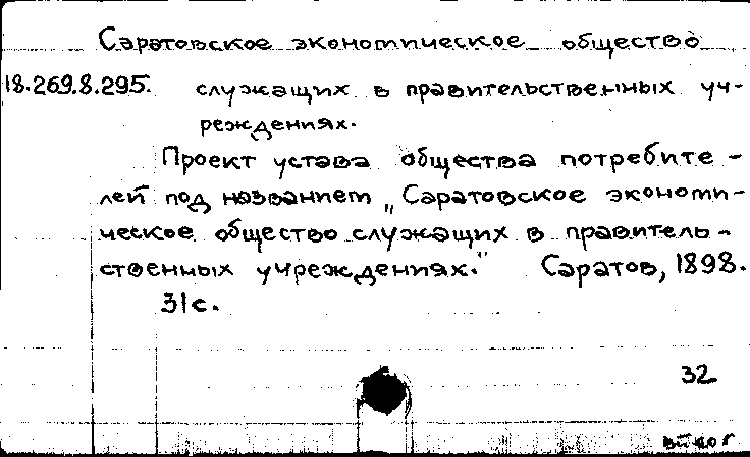 Саратовское экономическое общество
18.269.8.295.
служащих в правительственных уч-
реждениях.
Проект устава общества потребите-
лей под названием „Саратовское экономи-
ческое общество служащих в правитель-
ственных учреждениях." Саратов, 1898.
31 с.
32